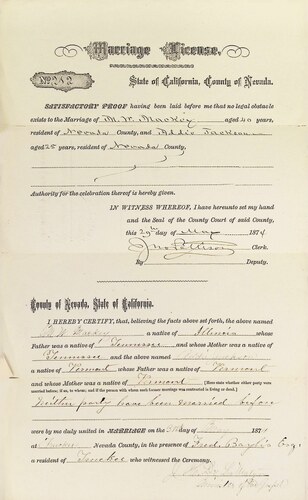 Marriage License.
No. 282
State of California, County of Nevada.
SATISFACTORY PROOF having been laid before me that no legal obstacle
exists to the Marriage of M. W. Mackey aged 40 years,
resident of Nevada County, and Addie Jackson
aged 25 years, resident of Nevada County,
Authority for the celebration thereof is hereby given.
IN WITNESS WHEREOF, I have hereunto set my hand
and the Seal of the County Court of said County,
this 29th day of May 1874
Jno Pattison Clerk.
By Deputy.
County of Nevada, State of California.
I HEREBY CERTIFY, that, believing the facts above set forth, the above named
a native of Illinois whose
Father was a native of Tennessee and whose Mother was a native of
Tennessee and the above named
a native of Vermont whose Father was a native of Vermont
and whose Mother was a native of Vermont (Here state whether either party
were married before, and if the person with whom such former marriage was contracted is living or dead.)
Neither party have been married before
were by me duly united in MARRIAGE on the day of 187
at Truckee Nevada County, in the presence of Fred
a resident of Truckee who witnessed the Ceremony.